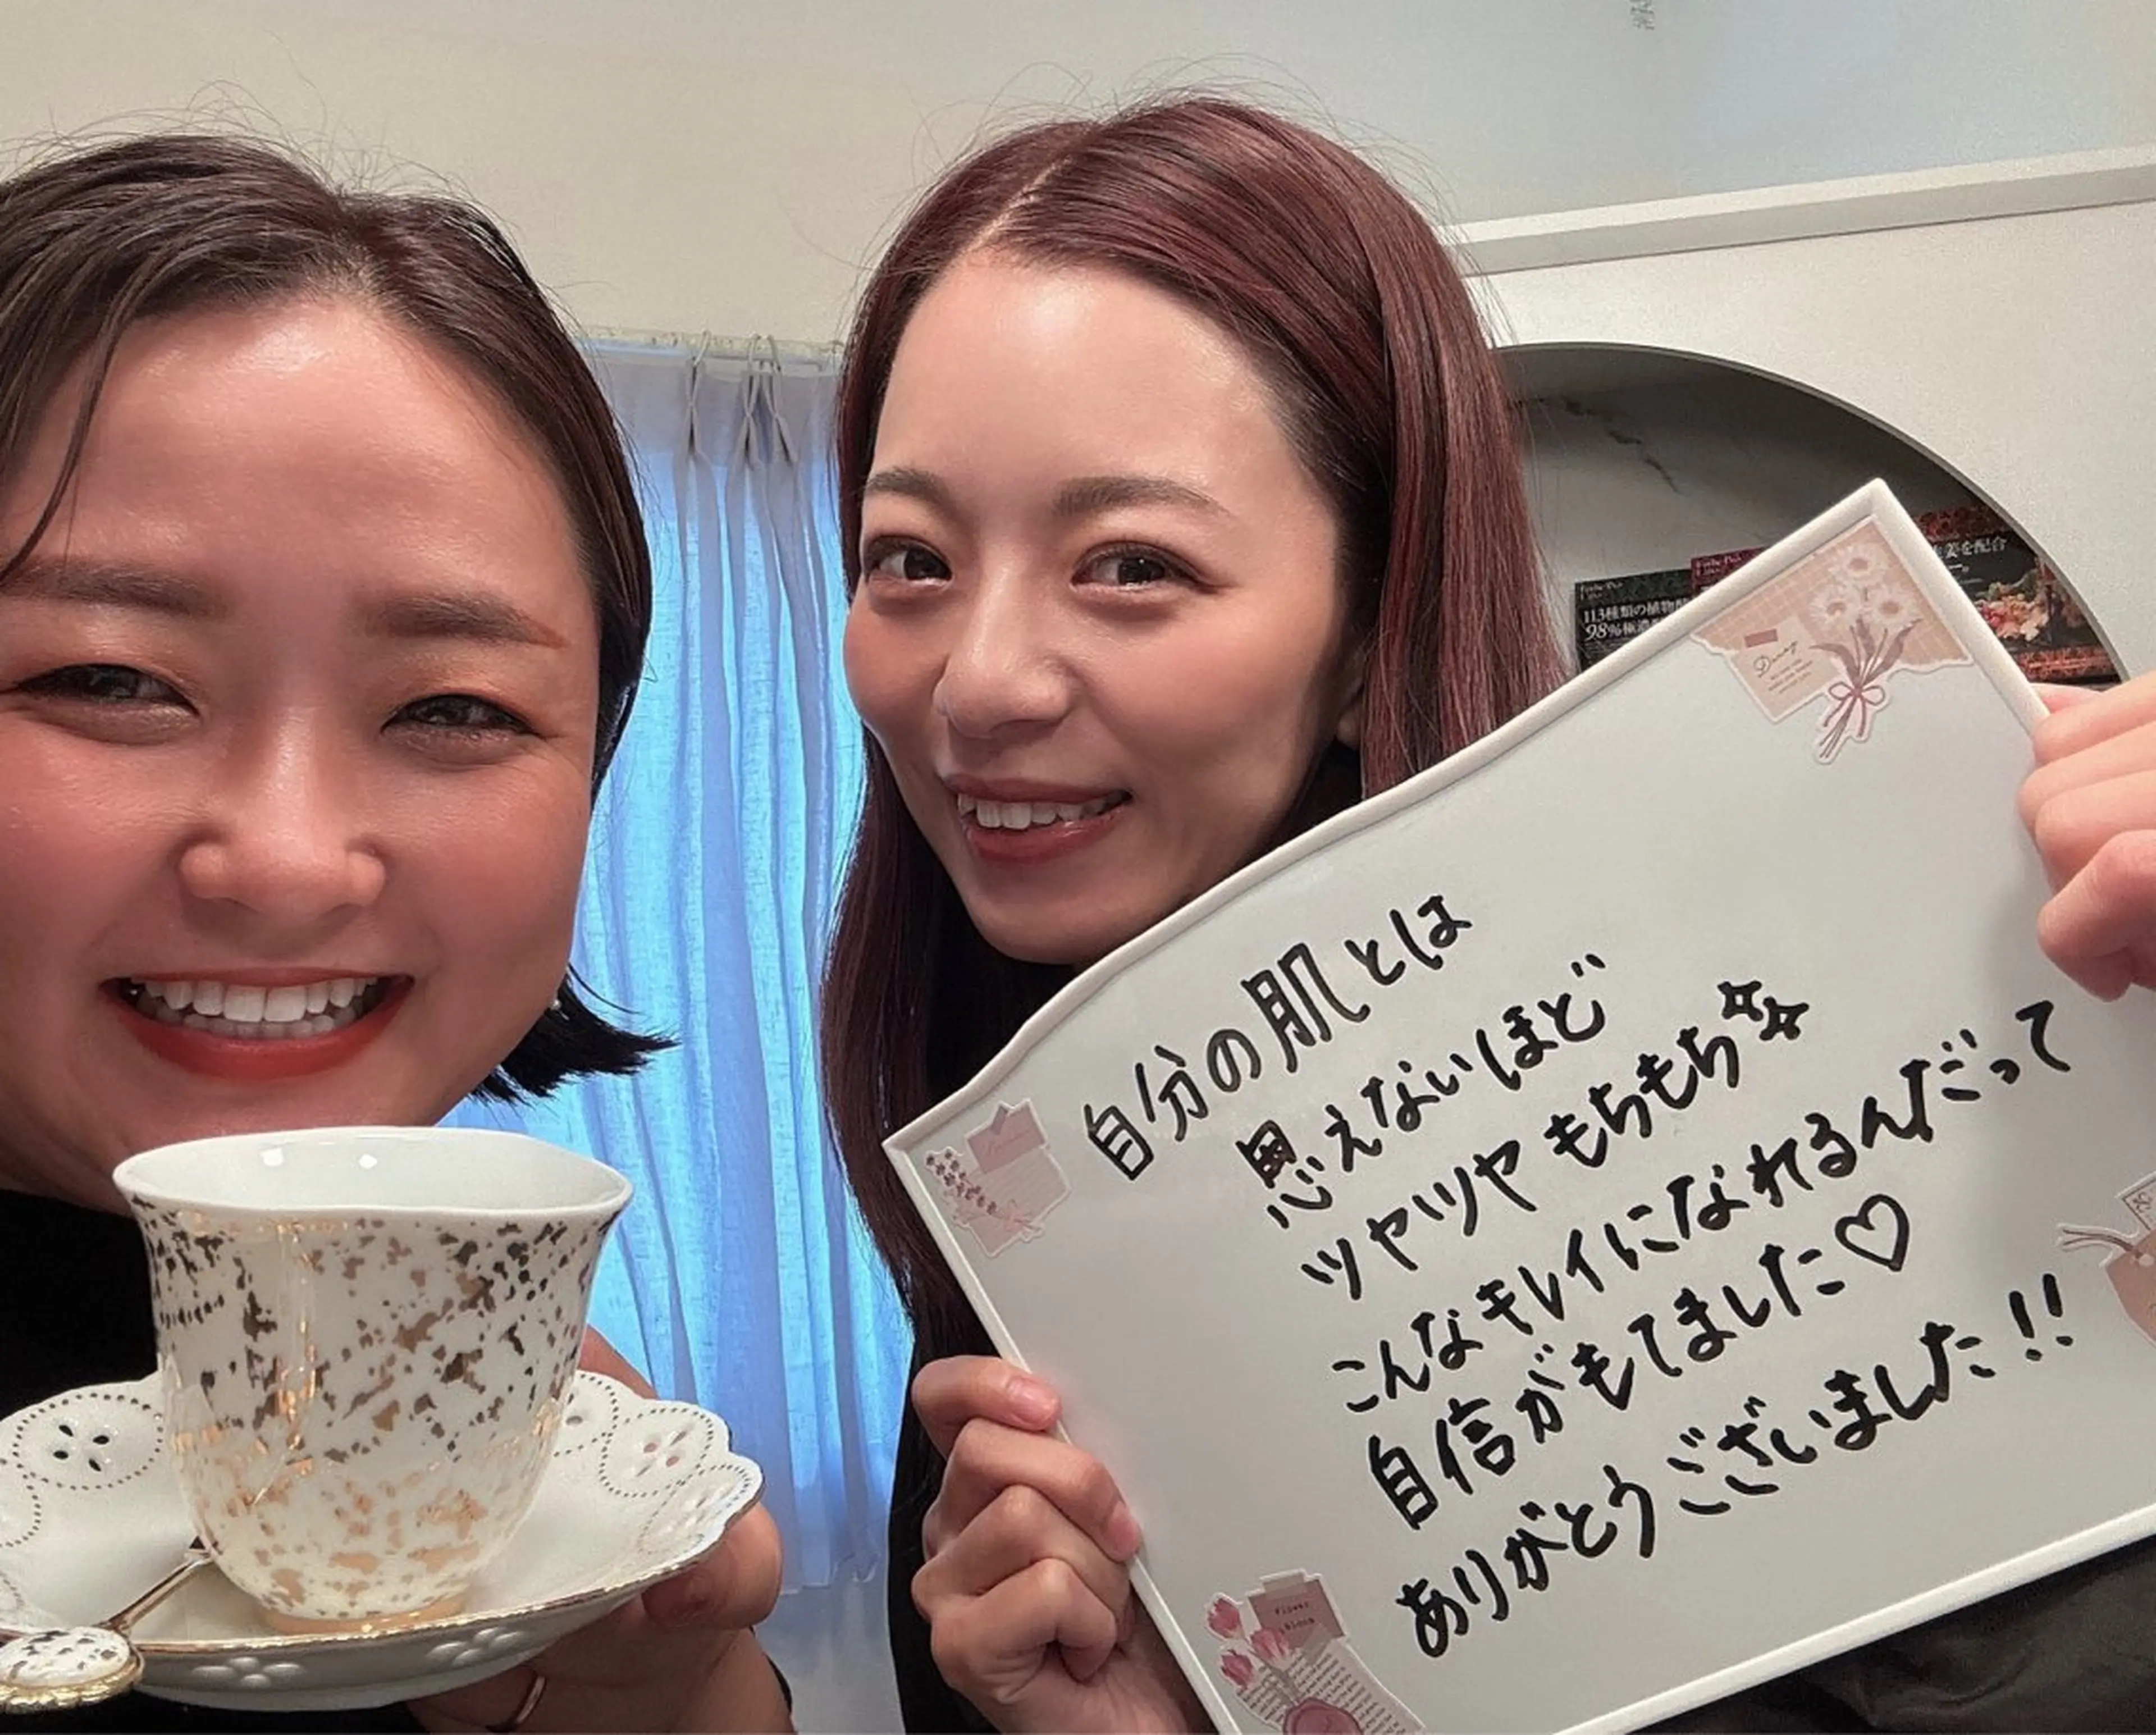 自分の肌とは
思えないほど
ツヤツヤ もちもち☆☆
こんなキレイになれるんだって
自信がもてました♡
ありがとうございました!!
113種類の植物
98%極濃
姜を配合
Flower